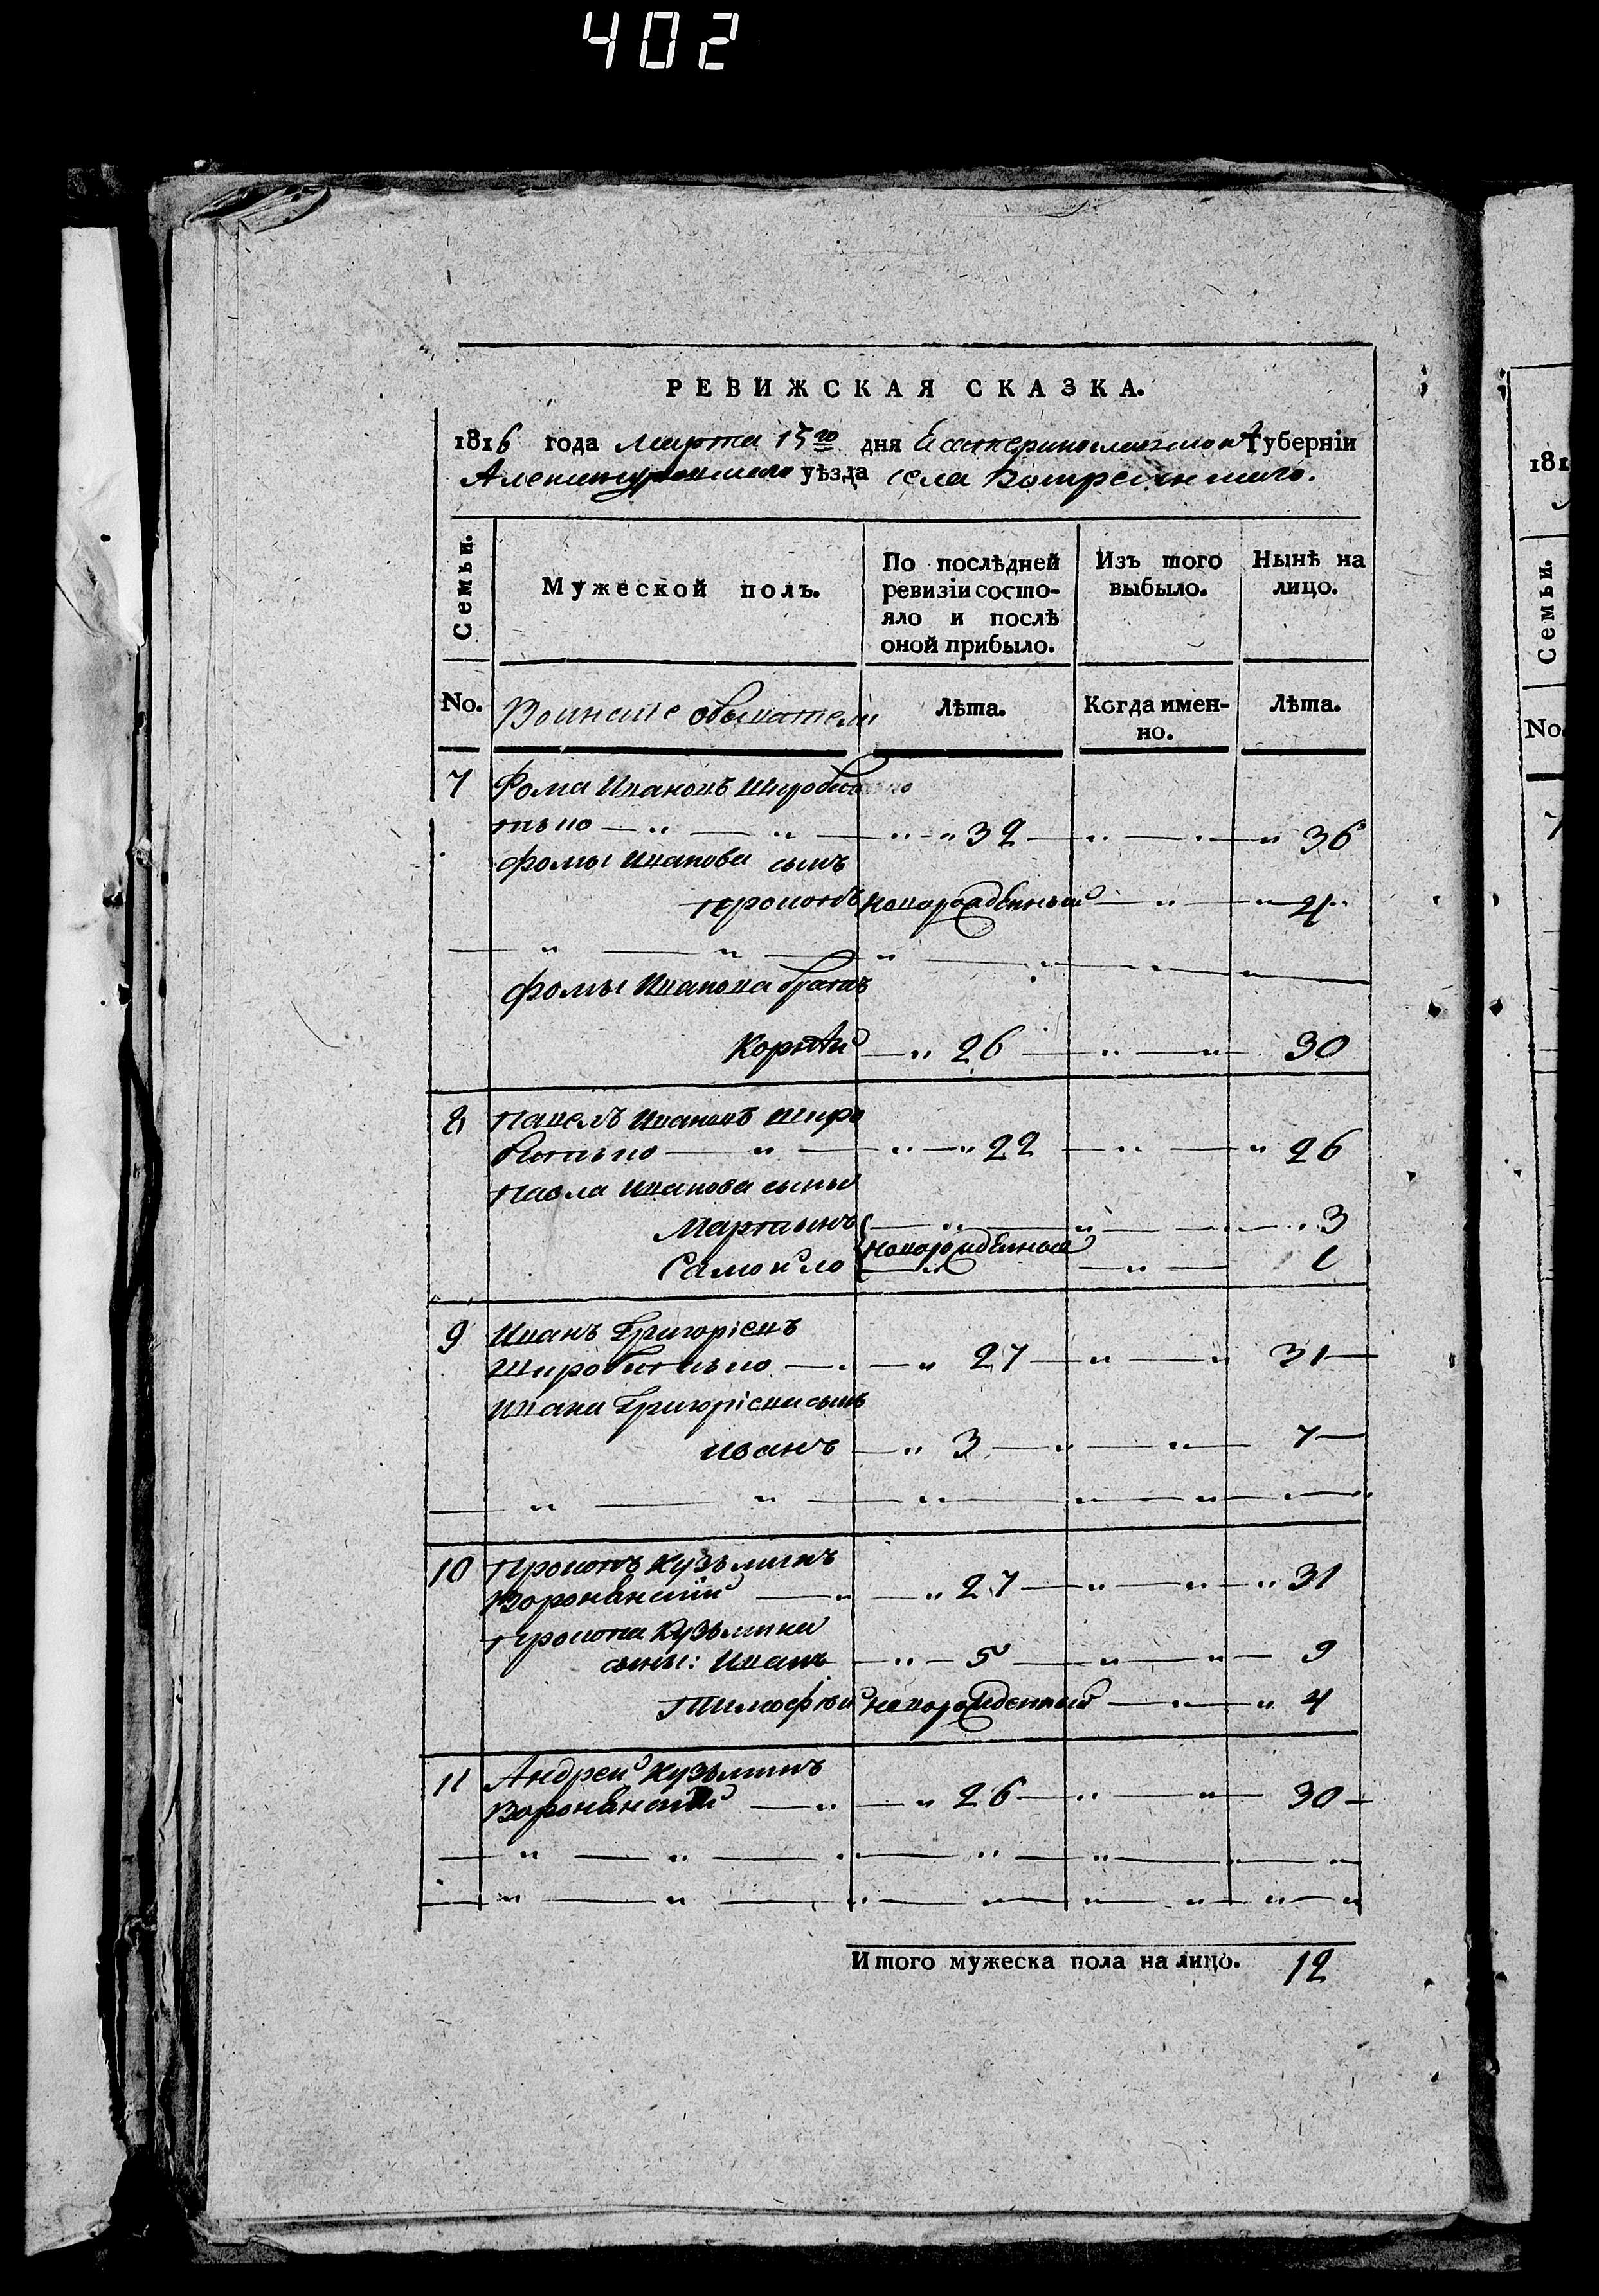 402
РЕВИЖСКАЯ СКАЗКА.
1816 года Марта 15го дня Екатеринославской Губерніи
Александровскаго уѣзда села Воскресенскаго.
Семьи.
Мужеской полъ.
По послѣдней ревизіи состо-
яло и послѣ
оной прибыло.
Изъ того
выбыло.
Нынѣ на
лицо.
No.
Воинскіе обыватели
Лѣта.
Когда имен-
но.
Лѣта.
7 Фома Ивановъ
тько — „ — „ — „ — „ 32 — „ — „ — „ 36
Фомы Иванова сынъ
Прокопъ новорожденный — „ — „ — 4
Фомы Иванова братъ
Корнѣй — „ 26 — „ — „ — 30
8 Павелъ Ивановъ Широ
битько — „ — „ — „ 22 — „ — „ 26
Павла Иванова сыны
Мартынъ — „ — „ — „ 3
новорожденные
Самойло — „ — „ — 1
9 Иванъ Григорьевъ
Широбитько — „ — „ 27 — „ — „ 31 —
Ивана Григорьева сынъ
Иванъ — „ 3 — „ — „ — 7 —
10 Прокопъ Кузьминъ
Воронянскій — „ — „ 27 — „ — „ — „ 31
Прокопа Кузьмина
сыны: Иванъ — „ — 5 — „ — „ — 9
Тимофѣй новорожденный — „ — „ 4
11 Андрей Кузьминъ
Воронянскій — „ — „ 26 — „ — „ — 30 —
Итого мужеска пола на лицо. 12
181
Семьи.
No.
7